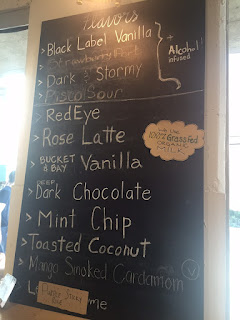 Flavors
> Black Label Vanilla
> Strawberry Port
> Dark & Stormy
> Pisco Sour
+ Alcohol!
infused
> RedEye
> Rose Latte
> BUCKET & BAY Vanilla
> DEEP Dark Chocolate
> Mint Chip
> Toasted Coconut
> Mango Smoked Cardamom
V
We Use
100% Grassfed
ORGANIC
MILK